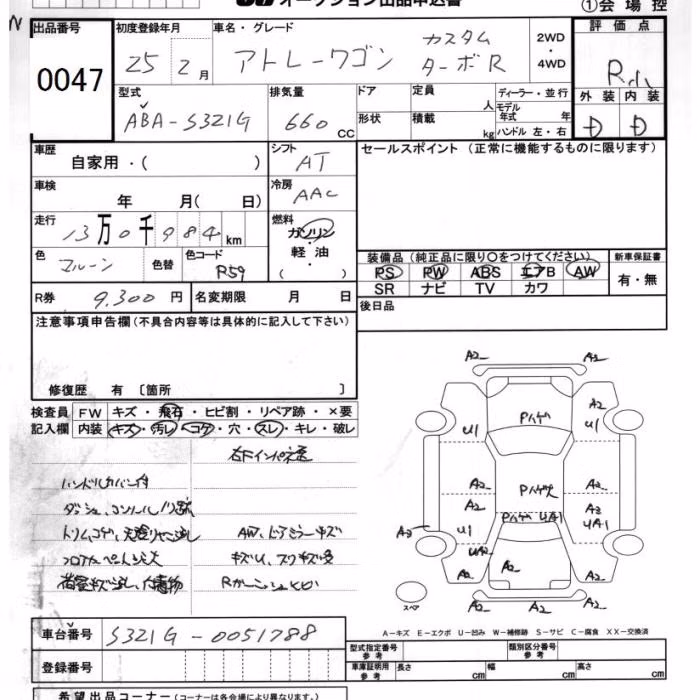 オークション出品申込書
①会場控
出品番号
0047
初度登録年月
25 2月
車名・グレード
アトレーワゴン カスタム ターボR
2WD・4WD
評価点
外装 内装
D D
型式
ABA-S321G
排気量
660 CC
ドア
形状
定員 人
積載 kg
ディーラー・並行
モデル年式 年
ハンドル 左・右
車歴
自家用・( )
シフト
AT
セールスポイント (正常に機能するものに限ります)
車検
年 月( 日)
冷房
AAC
走行
13万0千984km
燃料
ガソリン・軽油・( )
色
マルーン
色替
色コード
R59
装備品 (純正品に限り○をつけてください)
PS PW ABS エアB AW
SR ナビ TV カワ
新車保証書
有・無
R券 9,300円
名変期限 月 日
後日品
注意事項申告欄 (不具合内容等は具体的に記入して下さい)
修復歴 有 〔箇所 〕
検査員記入欄
FW キズ・飛石・ヒビ割・リペア跡・×要
内装 キズ・汚レ・コゲ・穴・スレ・キレ・破レ
ハンドルカバー付
AW、ドアミラーキズ
A2 A2
A2
U1 Pハゲ U1
A2 Pハゲ A2
A2
A2 U1 Pハゲ UA1 UA1
A2 A2 A2
スペア
A-キズ E-エクボ U-凹み W-補修跡 S-サビ C-腐食 XX-交換済
車台番号
S321G-0051788
登録番号
型式指定番号 参考
類別区分番号 参考
車庫証明用 参考
長さ cm 幅 cm 高さ cm
希望出品コーナー (コーナーは各会場により異なります。)